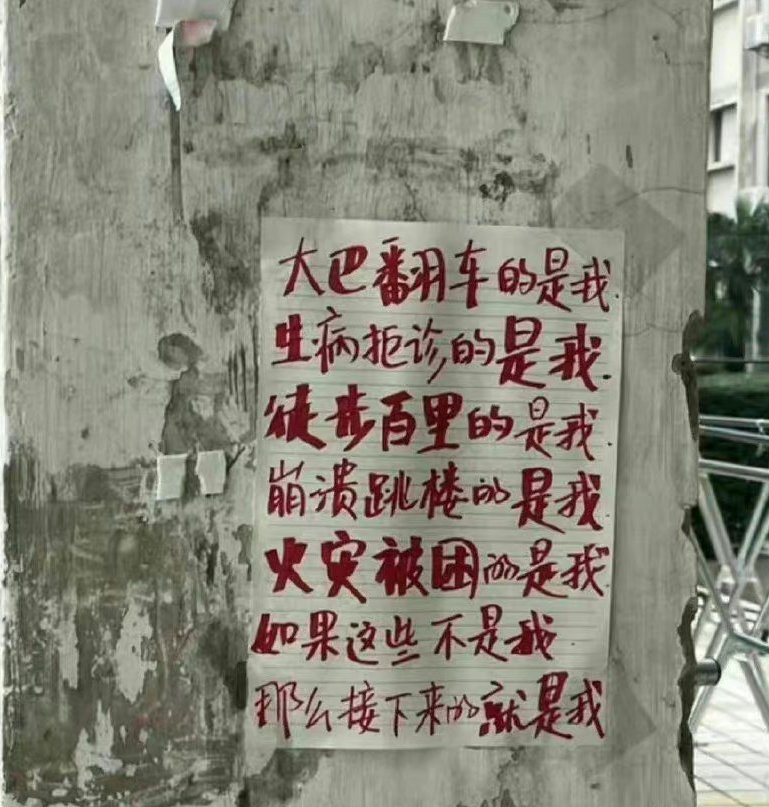 大巴翻车的是我.
生病拒诊的是我.
徒步百里的是我.
崩溃跳楼的是我.
火灾被困的是我.
如果这些不是我.
那么接下来的就是我